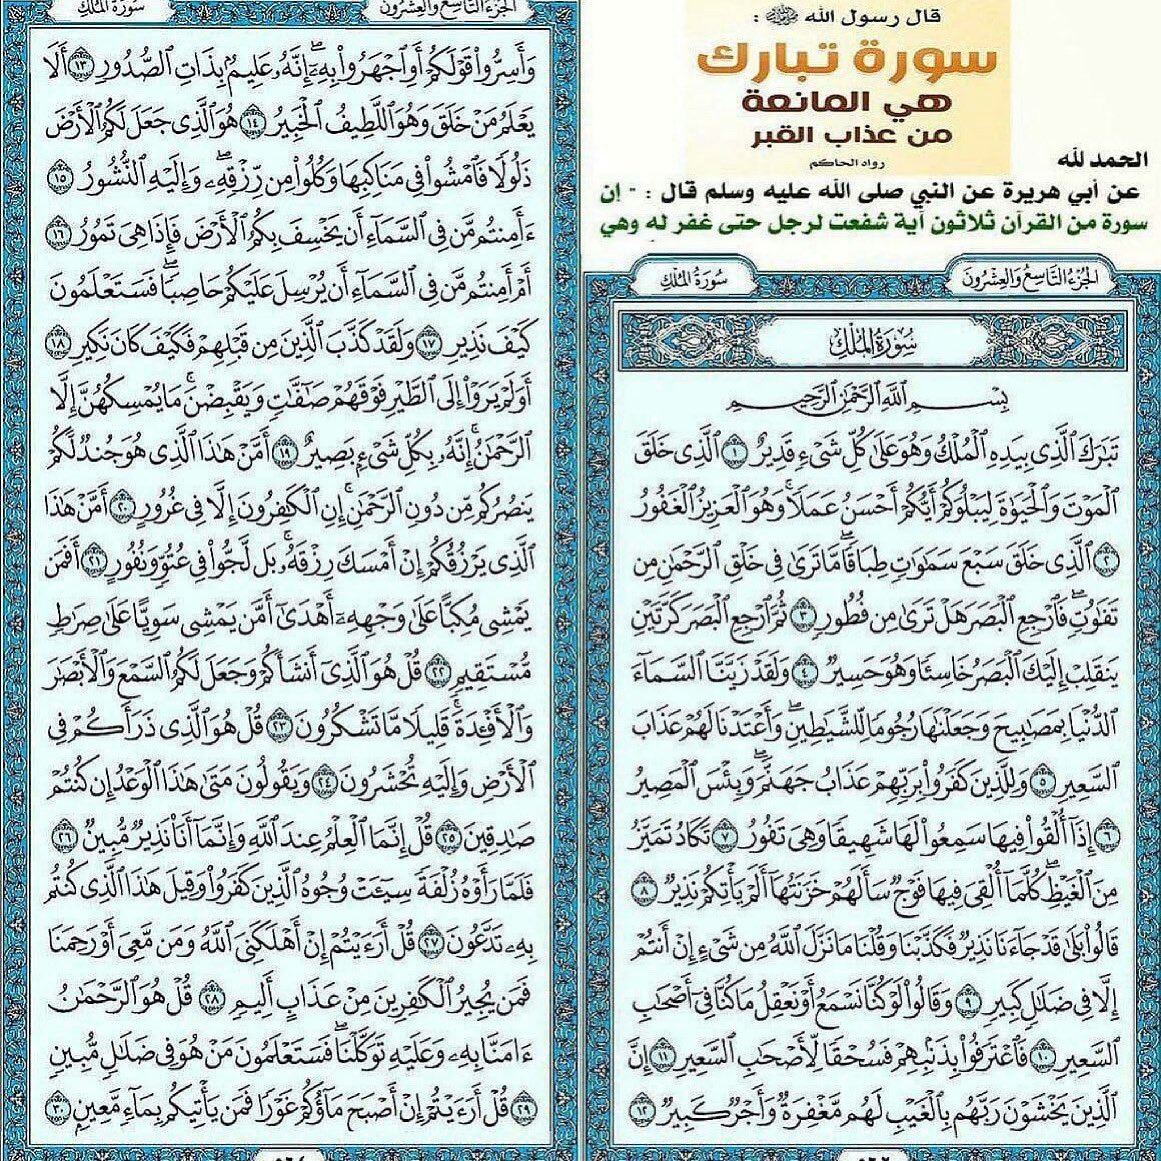 قال رسول الله ﷺ :
سورة تبارك
هي المانعة
من عذاب القبر
رواه الحاكم
الحمد لله
عن أبي هريرة عن النبي صلى الله عليه وسلم قال : - إن
سورة من القرآن ثلاثون آية شفعت لرجل حتى غفر له وهي
الجزء التاسع والعشرون
سورة الملك
سُورَةُ المُلْكِ
بِسْمِ ٱللَّهِ ٱلرَّحْمَٰنِ ٱلرَّحِيمِ
تَبَٰرَكَ ٱلَّذِى بِيَدِهِ ٱلْمُلْكُ وَهُوَ عَلَىٰ كُلِّ شَىْءٍ قَدِيرٌ ١ ٱلَّذِى خَلَقَ
ٱلْمَوْتَ وَٱلْحَيَوٰةَ لِيَبْلُوَكُمْ أَيُّكُمْ أَحْسَنُ عَمَلًا ۚ وَهُوَ ٱلْعَزِيزُ ٱلْغَفُورُ
٢ ٱلَّذِى خَلَقَ سَبْعَ سَمَٰوَٰتٍ طِبَاقًا ۖ مَّا تَرَىٰ فِى خَلْقِ ٱلرَّحْمَٰنِ مِن
تَفَٰوُتٍ ۖ فَٱرْجِعِ ٱلْبَصَرَ هَلْ تَرَىٰ مِن فُطُورٍ ٣ ثُمَّ ٱرْجِعِ ٱلْبَصَرَ كَرَّتَيْنِ
يَنقَلِبْ إِلَيْكَ ٱلْبَصَرُ خَاسِئًا وَهُوَ حَسِيرٌ ٤ وَلَقَدْ زَيَّنَّا ٱلسَّمَآءَ
ٱلدُّنْيَا بِمَصَٰبِيحَ وَجَعَلْنَٰهَا رُجُومًا لِّلشَّيَٰطِينِ ۖ وَأَعْتَدْنَا لَهُمْ عَذَابَ
ٱلسَّعِيرِ ٥ وَلِلَّذِينَ كَفَرُوا۟ بِرَبِّهِمْ عَذَابُ جَهَنَّمَ ۖ وَبِئْسَ ٱلْمَصِيرُ
٦ إِذَآ أُلْقُوا۟ فِيهَا سَمِعُوا۟ لَهَا شَهِيقًا وَهِىَ تَفُورُ ٧ تَكَادُ تَمَيَّزُ
مِنَ ٱلْغَيْظِ ۖ كُلَّمَآ أُلْقِىَ فِيهَا فَوْجٌ سَأَلَهُمْ خَزَنَتُهَآ أَلَمْ يَأْتِكُمْ نَذِيرٌ ٨
قَالُوا۟ بَلَىٰ قَدْ جَآءَنَا نَذِيرٌ فَكَذَّبْنَا وَقُلْنَا مَا نَزَّلَ ٱللَّهُ مِن شَىْءٍ إِنْ أَنتُمْ
إِلَّا فِى ضَلَٰلٍ كَبِيرٍ ٩ وَقَالُوا۟ لَوْ كُنَّا نَسْمَعُ أَوْ نَعْقِلُ مَا كُنَّا فِىٓ أَصْحَٰبِ
ٱلسَّعِيرِ ١٠ فَٱعْتَرَفُوا۟ بِذَنۢبِهِمْ فَسُحْقًا لِّأَصْحَٰبِ ٱلسَّعِيرِ ١١ إِنَّ
ٱلَّذِينَ يَخْشَوْنَ رَبَّهُم بِٱلْغَيْبِ لَهُم مَّغْفِرَةٌ وَأَجْرٌ كَبِيرٌ ١٢
الجزء التاسع والعشرون
سورة الملك
وَأَسِرُّوا۟ قَوْلَكُمْ أَوِ ٱجْهَرُوا۟ بِهِۦٓ ۖ إِنَّهُۥ عَلِيمٌۢ بِذَاتِ ٱلصُّدُورِ ١٣ أَلَا
يَعْلَمُ مَنْ خَلَقَ وَهُوَ ٱللَّطِيفُ ٱلْخَبِيرُ ١٤ هُوَ ٱلَّذِى جَعَلَ لَكُمُ ٱلْأَرْضَ
ذَلُولًا فَٱمْشُوا۟ فِى مَنَاكِبِهَا وَكُلُوا۟ مِن رِّزْقِهِۦ ۖ وَإِلَيْهِ ٱلنُّشُورُ ١٥
ءَأَمِنتُم مَّن فِى ٱلسَّمَآءِ أَن يَخْسِفَ بِكُمُ ٱلْأَرْضَ فَإِذَا هِىَ تَمُورُ ١٦
أَمْ أَمِنتُم مَّن فِى ٱلسَّمَآءِ أَن يُرْسِلَ عَلَيْكُمْ حَاصِبًا ۖ فَسَتَعْلَمُونَ
كَيْفَ نَذِيرِ ١٧ وَلَقَدْ كَذَّبَ ٱلَّذِينَ مِن قَبْلِهِمْ فَكَيْفَ كَانَ نَكِيرِ ١٨
أَوَلَمْ يَرَوْا۟ إِلَى ٱلطَّيْرِ فَوْقَهُمْ صَٰٓفَّٰتٍ وَيَقْبِضْنَ ۚ مَا يُمْسِكُهُنَّ إِلَّا
ٱلرَّحْمَٰنُ ۚ إِنَّهُۥ بِكُلِّ شَىْءٍۭ بَصِيرٌ ١٩ أَمَّنْ هَٰذَا ٱلَّذِى هُوَ جُندٌ لَّكُمْ
يَنصُرُكُم مِّن دُونِ ٱلرَّحْمَٰنِ ۚ إِنِ ٱلْكَٰفِرُونَ إِلَّا فِى غُرُورٍ ٢٠ أَمَّنْ هَٰذَا
ٱلَّذِى يَرْزُقُكُمْ إِنْ أَمْسَكَ رِزْقَهُۥ ۚ بَل لَّجُّوا۟ فِى عُتُوٍّ وَنُفُورٍ ٢١ أَفَمَن
يَمْشِى مُكِبًّا عَلَىٰ وَجْهِهِۦٓ أَهْدَىٰٓ أَمَّن يَمْشِى سَوِيًّا عَلَىٰ صِرَٰطٍ
مُّسْتَقِيمٍ ٢٢ قُلْ هُوَ ٱلَّذِىٓ أَنشَأَكُمْ وَجَعَلَ لَكُمُ ٱلسَّمْعَ وَٱلْأَبْصَٰرَ
وَٱلْأَفْـِٔدَةَ ۖ قَلِيلًا مَّا تَشْكُرُونَ ٢٣ قُلْ هُوَ ٱلَّذِى ذَرَأَكُمْ فِى
ٱلْأَرْضِ وَإِلَيْهِ تُحْشَرُونَ ٢٤ وَيَقُولُونَ مَتَىٰ هَٰذَا ٱلْوَعْدُ إِن كُنتُمْ
صَٰدِقِينَ ٢٥ قُلْ إِنَّمَا ٱلْعِلْمُ عِندَ ٱللَّهِ وَإِنَّمَآ أَنَا۠ نَذِيرٌ مُّبِينٌ ٢٦
فَلَمَّا رَأَوْهُ زُلْفَةً سِيٓـَٔتْ وُجُوهُ ٱلَّذِينَ كَفَرُوا۟ وَقِيلَ هَٰذَا ٱلَّذِى كُنتُم
بِهِۦ تَدَّعُونَ ٢٧ قُلْ أَرَءَيْتُمْ إِنْ أَهْلَكَنِىَ ٱللَّهُ وَمَن مَّعِىَ أَوْ رَحِمَنَا
فَمَن يُجِيرُ ٱلْكَٰفِرِينَ مِنْ عَذَابٍ أَلِيمٍ ٢٨ قُلْ هُوَ ٱلرَّحْمَٰنُ
ءَامَنَّا بِهِۦ وَعَلَيْهِ تَوَكَّلْنَا ۖ فَسَتَعْلَمُونَ مَنْ هُوَ فِى ضَلَٰلٍ مُّبِينٍ
٢٩ قُلْ أَرَءَيْتُمْ إِنْ أَصْبَحَ مَآؤُكُمْ غَوْرًا فَمَن يَأْتِيكُم بِمَآءٍ مَّعِينٍۭ ٣٠